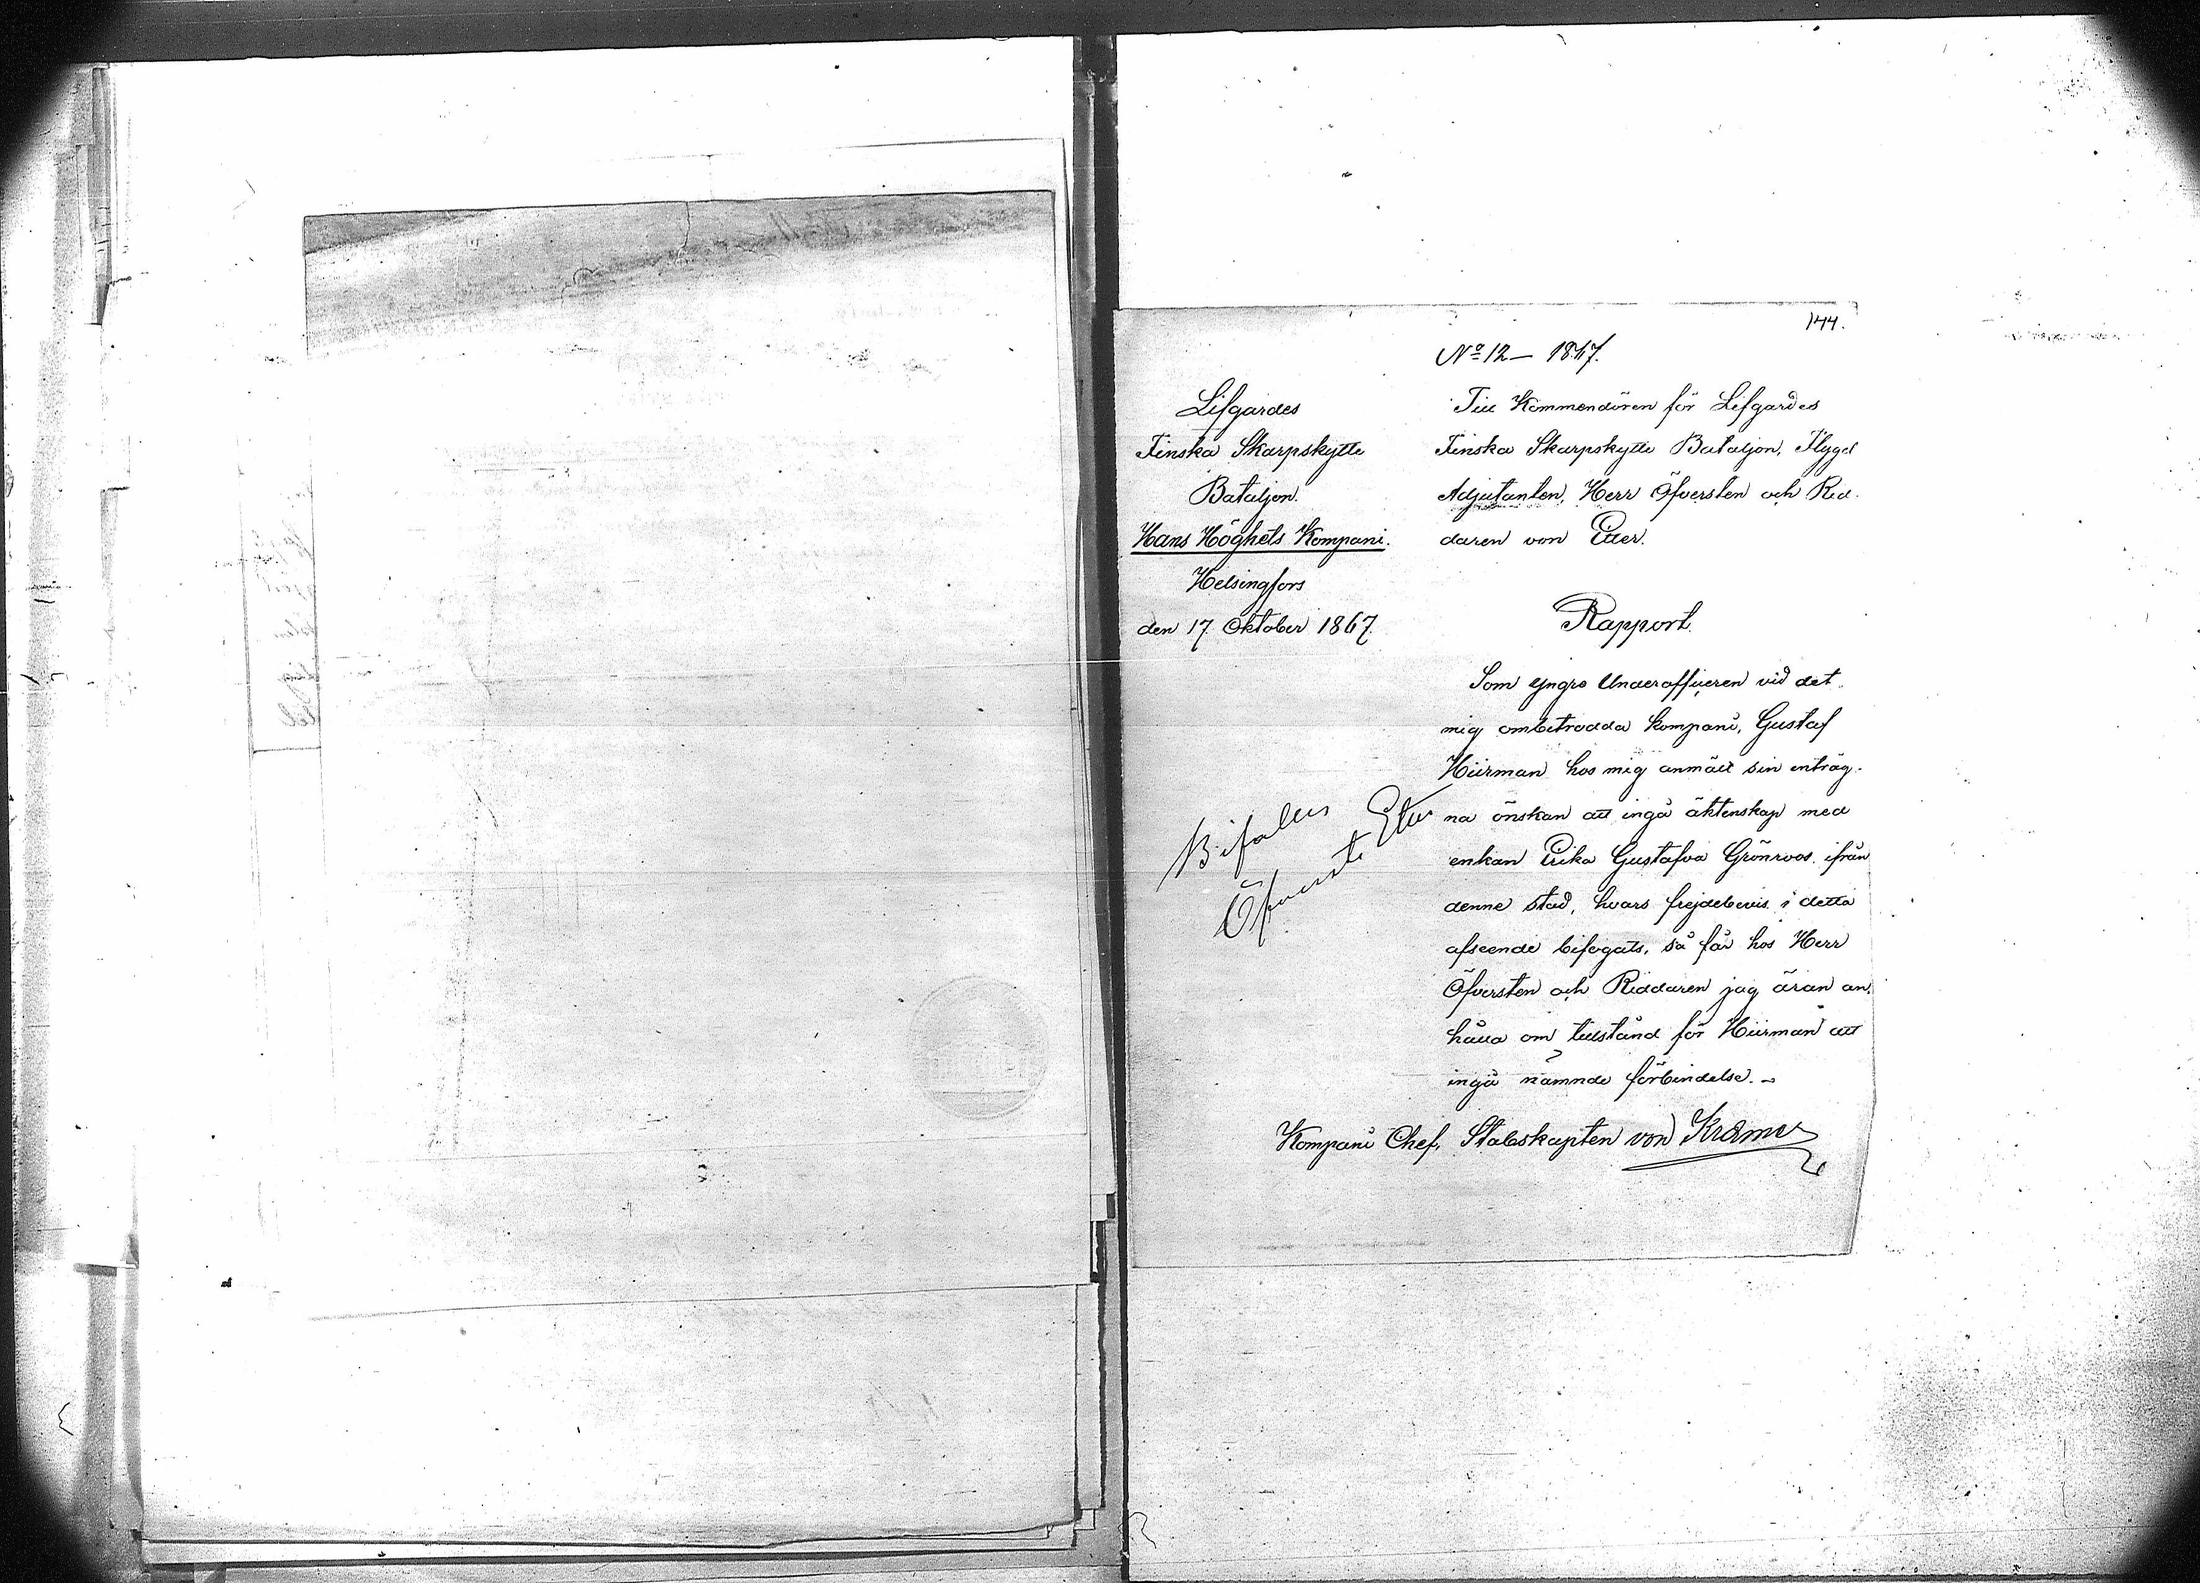 144.
No 12 — 1867.
Lifgardes
Finska Skarpskytte
Bataljon.
Hans Höghets Kompani.
Helsingfors
den 17 Oktober 1867.
Till Kommendören för Lifgardes
Finska Skarpskytte Bataljon, Flygel
Adjutanten, Herr Öfversten och Rid-
daren von Etter.
Rapport.
Som yngre Underofficeren vid det
mig ombetrodda kompani, Gustaf
Hiirman hos mig anmält sin enträg-
na önskan att ingå äktenskap med
enkan Erika Gustafva Grönroos ifrån
denne stad, hvars frejdebevis i detta
afseende bifogats, så får hos Herr
Öfversten och Riddaren jag äran an-
hålla om tillstånd för Hiirman att
ingå nämnde förbindelse. —
Bifalles
Öfverste Etter
Kompani Chef, Stabskapten von Kræmer